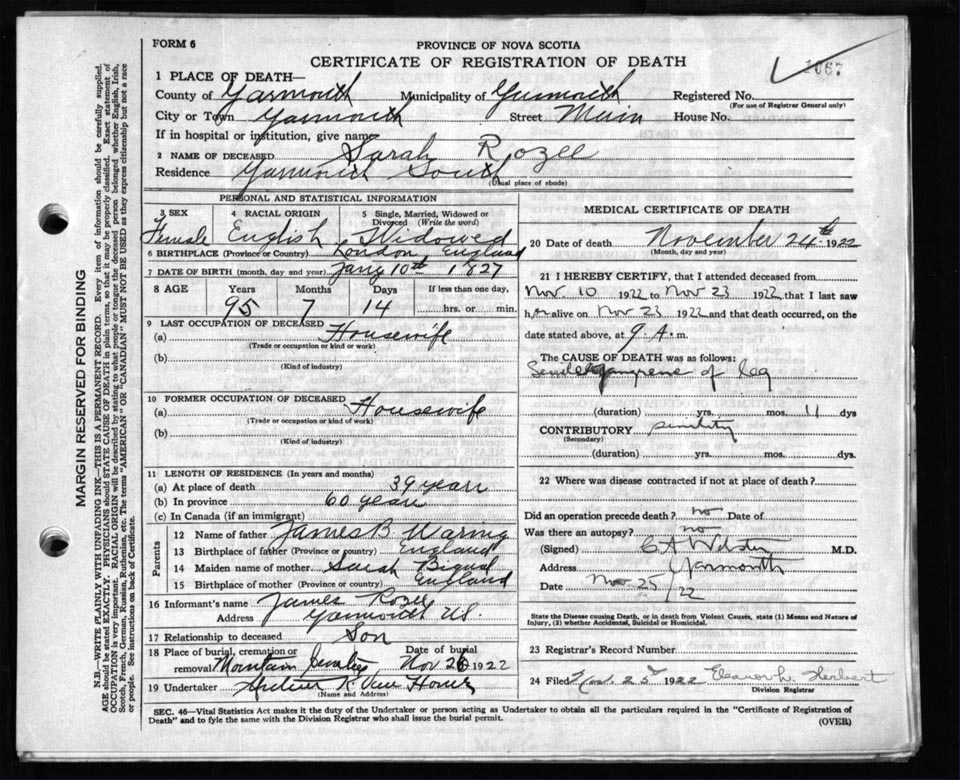 FORM 6
PROVINCE OF NOVA SCOTIA
CERTIFICATE OF REGISTRATION OF DEATH
1067
1 PLACE OF DEATH—
County of Yarmouth Municipality of Yarmouth Registered No.
(For use of Registrar General only)
City or Town Yarmouth Street Main House No.
If in hospital or institution, give name
2 NAME OF DECEASED Sarah Rozee
Residence Yarmouth South
(Usual place of abode)
PERSONAL AND STATISTICAL INFORMATION
3 SEX 4 RACIAL ORIGIN 5 Single, Married, Widowed or Divorced (Write the word)
Female English Widowed
6 BIRTHPLACE (Province or Country) London England
7 DATE OF BIRTH (month, day and year) Jany 10th 1827
8 AGE Years Months Days If less than one day,
95 7 14 hrs. or min.
9 LAST OCCUPATION OF DECEASED
(a) Housewife
(Trade or occupation or kind or work)
(b)
(Kind of industry)
10 FORMER OCCUPATION OF DECEASED
(a) Housewife
(Trade or occupation or kind of work)
(b)
(Kind of industry)
11 LENGTH OF RESIDENCE (In years and months)
(a) At place of death 39 years
(b) In province 60 years
(c) In Canada (if an immigrant)
Parents
12 Name of father James B. Waring
13 Birthplace of father (Province or country) England
14 Maiden name of mother Sarah
15 Birthplace of mother (Province or country) England
16 Informant's name James Rozee
Address Yarmouth
17 Relationship to deceased Son
18 Place of burial, cremation or removal Mountain Cemetery Date of burial Nov 26 1922
19 Undertaker
(Name and Address)
MEDICAL CERTIFICATE OF DEATH
20 Date of death November 24th 1922
(Month, day and year)
21 I HEREBY CERTIFY, that I attended deceased from
Nov. 10 1922 to Nov 23 1922 that I last saw
her alive on Nov 23 1922 and that death occurred, on the
date stated above, at 9. A. m.
The CAUSE OF DEATH was as follows:
Senile gangrene of leg
(duration) yrs. mos. 11 dys
CONTRIBUTORY senility
(Secondary)
(duration) yrs. mos. dys.
22 Where was disease contracted if not at place of death?
Did an operation precede death? no Date of
Was there an autopsy? no
(Signed) C A Webster M.D.
Address Yarmouth
Date Nov 25/22
State the Disease causing Death, or in Death from Violent Causes, state (1) Means and Nature of
Injury, (2) whether Accidental, Suicidal or Homicidal.
23 Registrar's Record Number
24 Filed Nov. 25 1922 Eleanor L. Herbert
Division Registrar
SEC. 46—Vital Statistics Act makes it the duty of the Undertaker or person acting as Undertaker to obtain all the particulars required in the "Certificate of Registration of
Death" and to fyle the same with the Division Registrar who shall issue the burial permit.
(OVER)
MARGIN RESERVED FOR BINDING
N.B.—WRITE PLAINLY WITH UNFADING INK—THIS IS A PERMANENT RECORD. Every item of information should be carefully supplied.
AGE should be stated EXACTLY. PHYSICIANS should STATE CAUSE OF DEATH in plain terms, so that it may be properly classified. Exact statement of
OCCUPATION is very important. RACIAL ORIGIN will be described by stating to what people or tongue the deceased person belonged whether English, Irish,
Scotch, French, German, Russian, Ruthenian, etc. The terms "AMERICAN" OR "CANADIAN" MUST NOT BE USED as they express citizenship but not a race
or people. See instructions on back of Certificate.